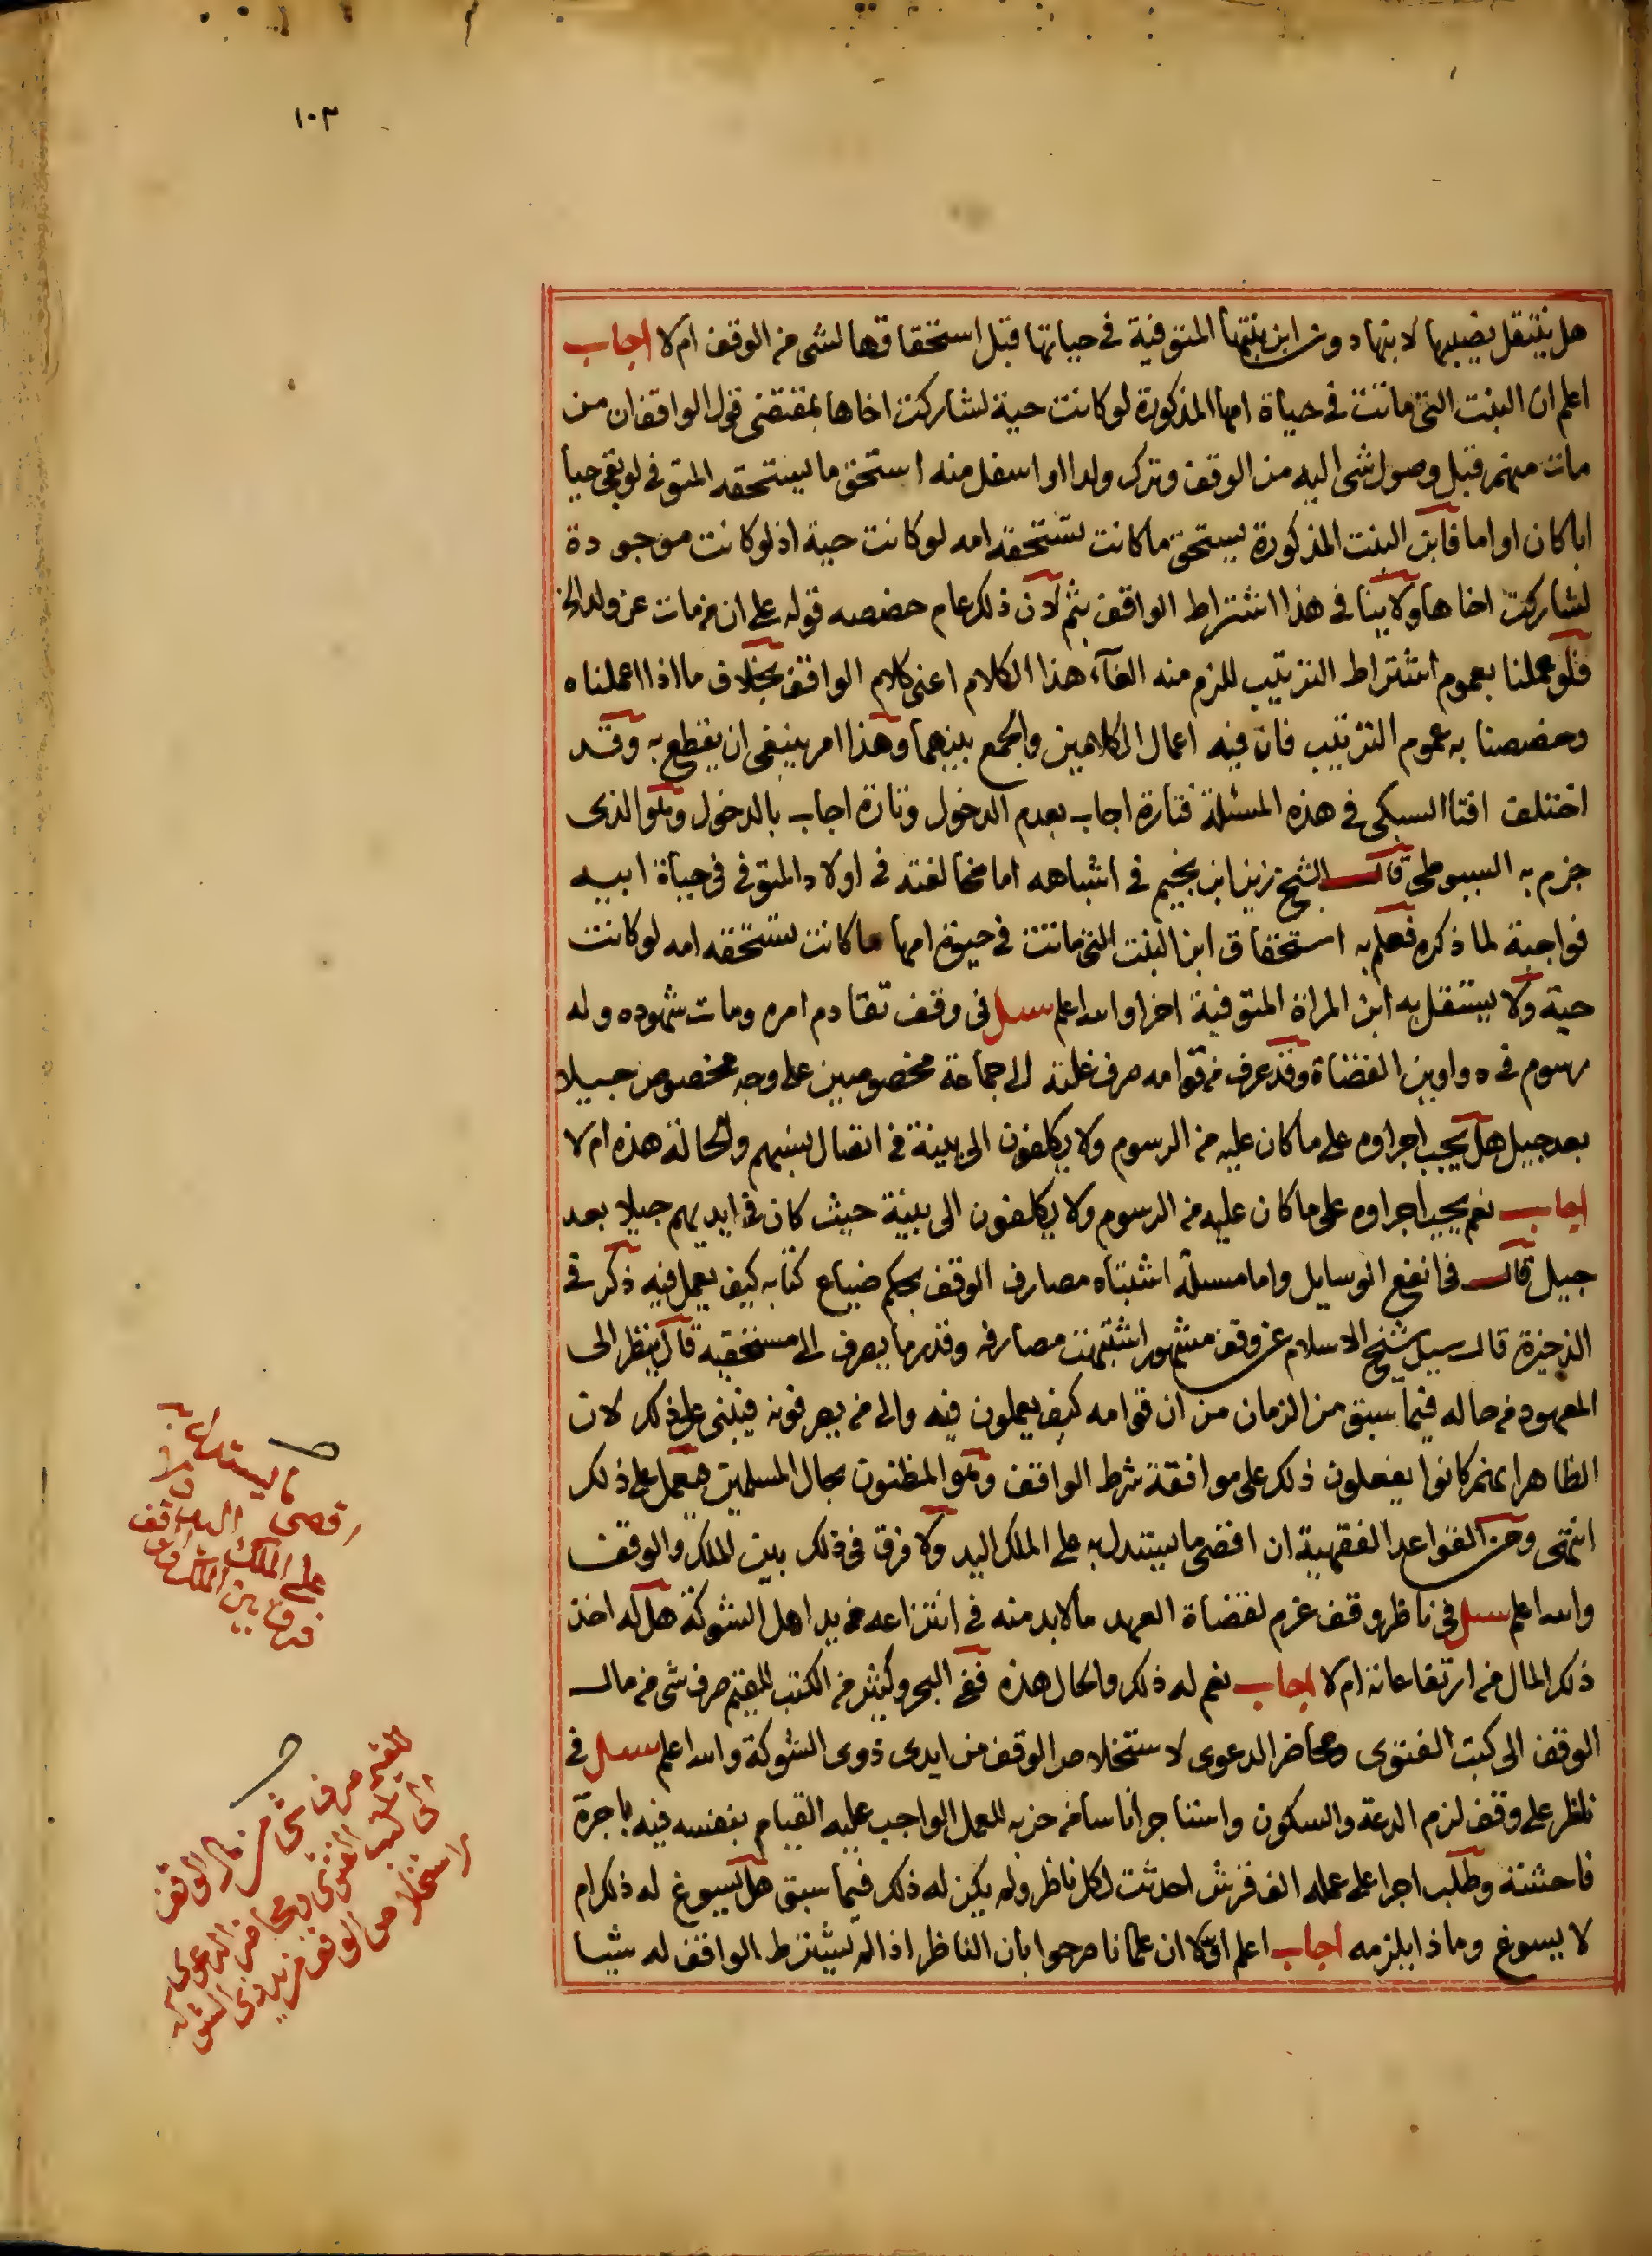 ١٠٣
هل ينتقل نصيبها لابنها دون ابن بنتها المتوفية في حياتها قبل استحقاقها لشي من الوقف ام لا اجاب
اعلم ان البنت التي ماتت في حياة امها المذكورة لو كانت حية لشاركت اخاها بمقتضى قول الواقف ان من
مات منهم قبل وصول شي اليه من الوقف وترك ولدا او اسفل منه استحق ما يستحقه المتوفى لو بقي حيا
ابا كان او اما فابن البنت المذكورة يستحق ما كانت تستحقه امه لو كانت حية اذ لو كانت موجودة
لشاركت اخاها ولا ينا في هذا اشتراط الواقف بثم لان ذلك عام خصصه قوله على ان من مات عن ولد الخ
فلو عملنا بعموم اشتراط الترتيب للزم منه الغآء هذا الكلام اعني كلام الواقف بخلاف ما اذا اعملناه
وخصصنا به عموم الترتيب فان فيه اعمال الكلامين والجمع بينهما وهذا امر ينبغي ان يقطع به وقد
اختلف افتا السبكي في هذه المسئلة فتارة اجاب بعدم الدخول وتارة اجاب بالدخول وهو الذى
جزم به السيوطي قال الشيخ زين ابن نجيم في اشباهه اما مخالفته في اولاد المتوفى في حياة ابيه
فواجبة لما ذكره فعلم به استحقاق ابن البنت التي ماتت في حيوة امها ما كانت تستحقه امه لو كانت
حية ولا يستقل به ابن المراة المتوفية اخرا والله اعلم سيل في وقف تقادم امره ومات شهوده وله
رسوم في دواوين القضاة وقد عرف من قوامه صرف غلته الى جماعة مخصوصين على وجه مخصوص جيلا
بعد جيل هل يجب اجراوه على ما كان عليه من الرسوم ولا يكلفون الى بينة في اتصال نسبهم والحالة هذه ام لا
اجاب نعم يجب اجراوه على ما كان عليه من الرسوم ولا يكلفون الى بينة حيث كان في ايديهم جيلا بعد
جيل قال في انفع الوسايل واما مسلة اشتباه مصارف الوقف بحكم ضياع كتابه كيف يعمل فيه ذكر في
الذخيرة قال سيل شيخ الاسلام عن وقف مشهور اشتبهت مصارفه وقدر ما يصرف الى مستحقيه قال ينظر الى
المعهود من حاله فيما سبق من الزمان من ان قوامه كيف يعملون فيه والى من يصرفونه فيبنى على ذلك لان
الظاهر انهم كانوا يفعلون ذلك على موافقة شرط الواقف وهو المظنون بحال المسلمين فيعمل على ذلك
انتهى ومن القواعد الفقهية ان اقصى ما يستدل به على الملك اليد ولا فرق في ذلك بين الملك والوقف
والله اعلم سيل في ناظر وقف غرم لقضاة العهد ما لابد منه في انتزاعه من يد اهل الشوكة هل له اخذ
ذلك المال من ارتفاعاته ام لا اجاب نعم له ذلك والحال هذه ففي البحر وكثير من الكتب للقيم صرف شي من مال
الوقف الى كتب الفتوى ومحاضر الدعوى لاستخلاص الوقف من ايدى ذوى الشوكة والله اعلم سيل في
ناظر على وقف لزم الدعة والسكون واستاجر اناسا من حزبه للعمل الواجب عليه القيام بنفسه فيه باجرة
فاحشته وطلب اجرا على عمله الف قرش احدثت لكل ناظر ولم يكن له ذلك فيما سبق هل يسوغ له ذلك ام
لا يسوغ وماذا يلزمه اجاب اعلم اولا ان علمانا صرحوا بان الناظر اذا لم يشترط الواقف له شيا
اقصى ما يستدل به
على الملك اليد ولا
فرق بين الملك والوقف
للقيم صرف شي من مال الوقف
الى كتب الفتوى ومحاضر الدعوى
لاستخلاص الوقف من يد ذوى الشوكة